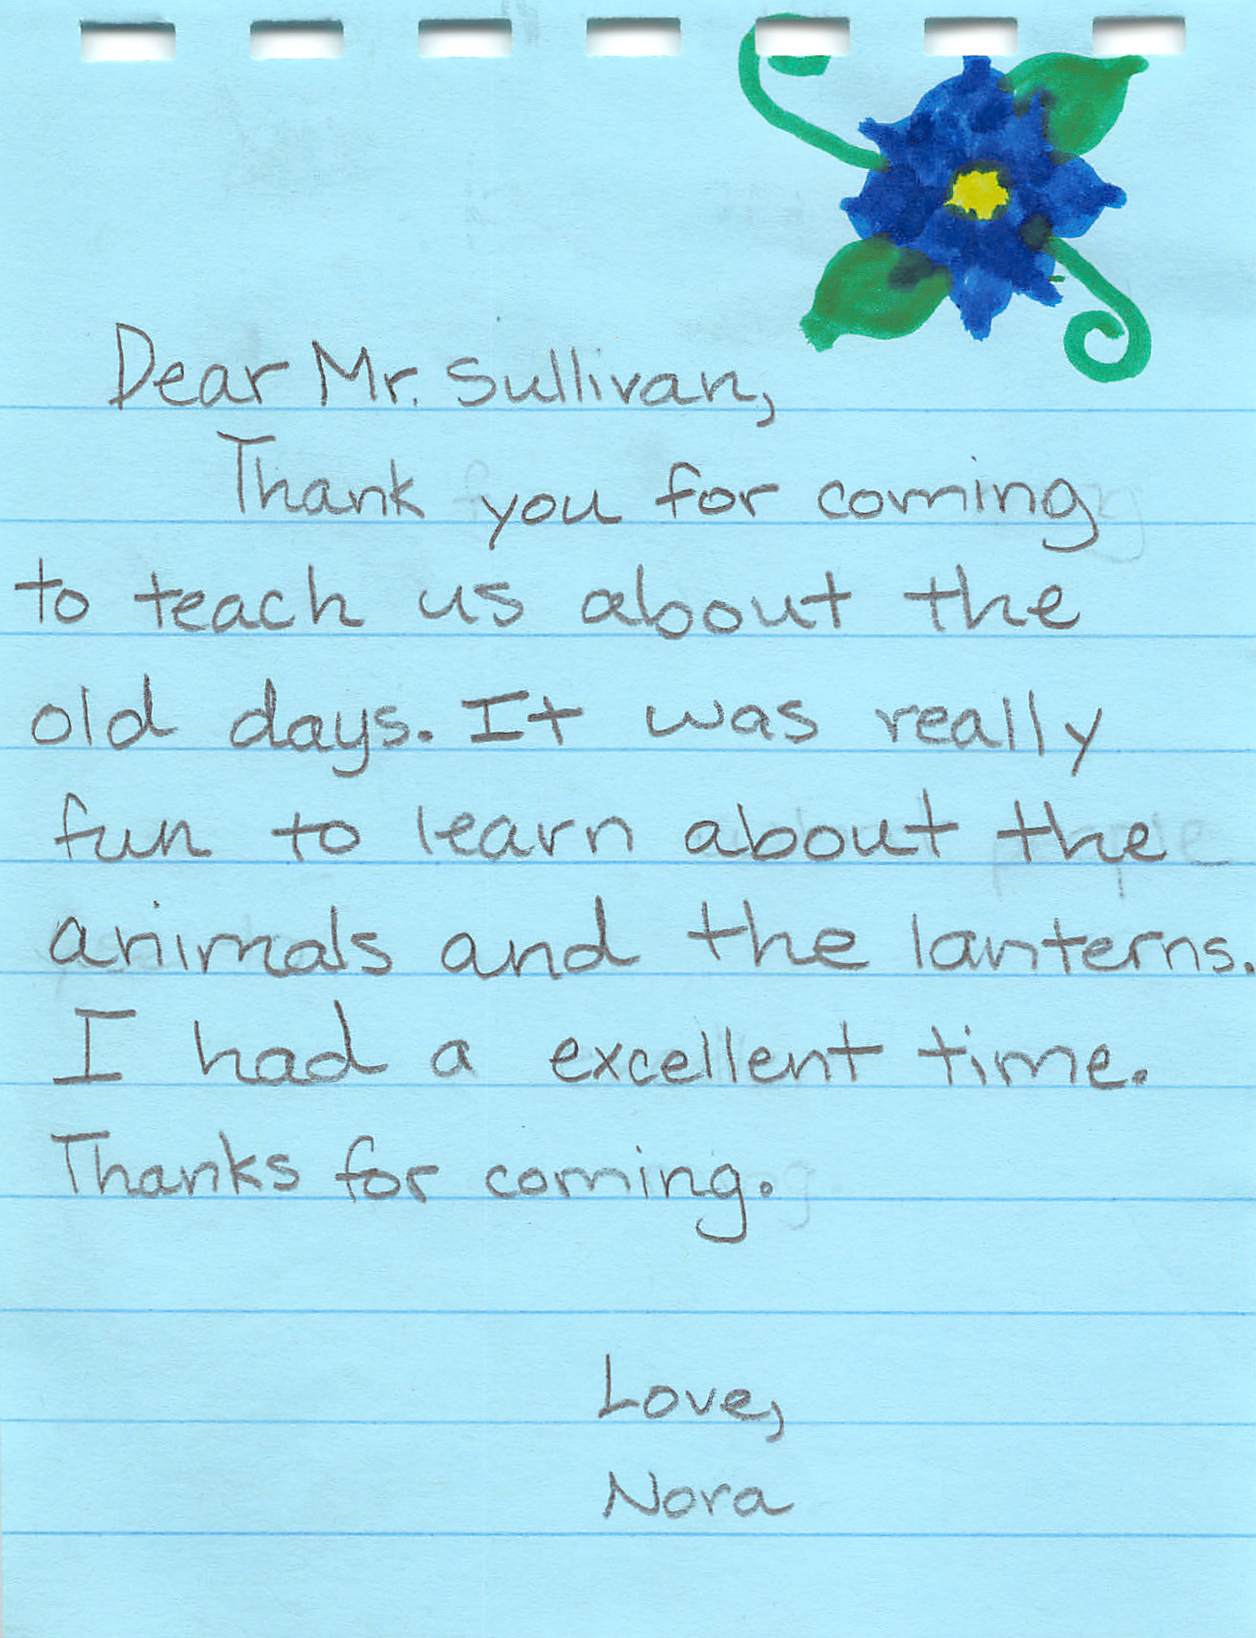 Dear Mr. Sullivan,
Thank you for coming
to teach us about the
old days. It was really
fun to learn about the
animals and the lanterns.
I had a excellent time.
Thanks for coming.
Love,
Nora